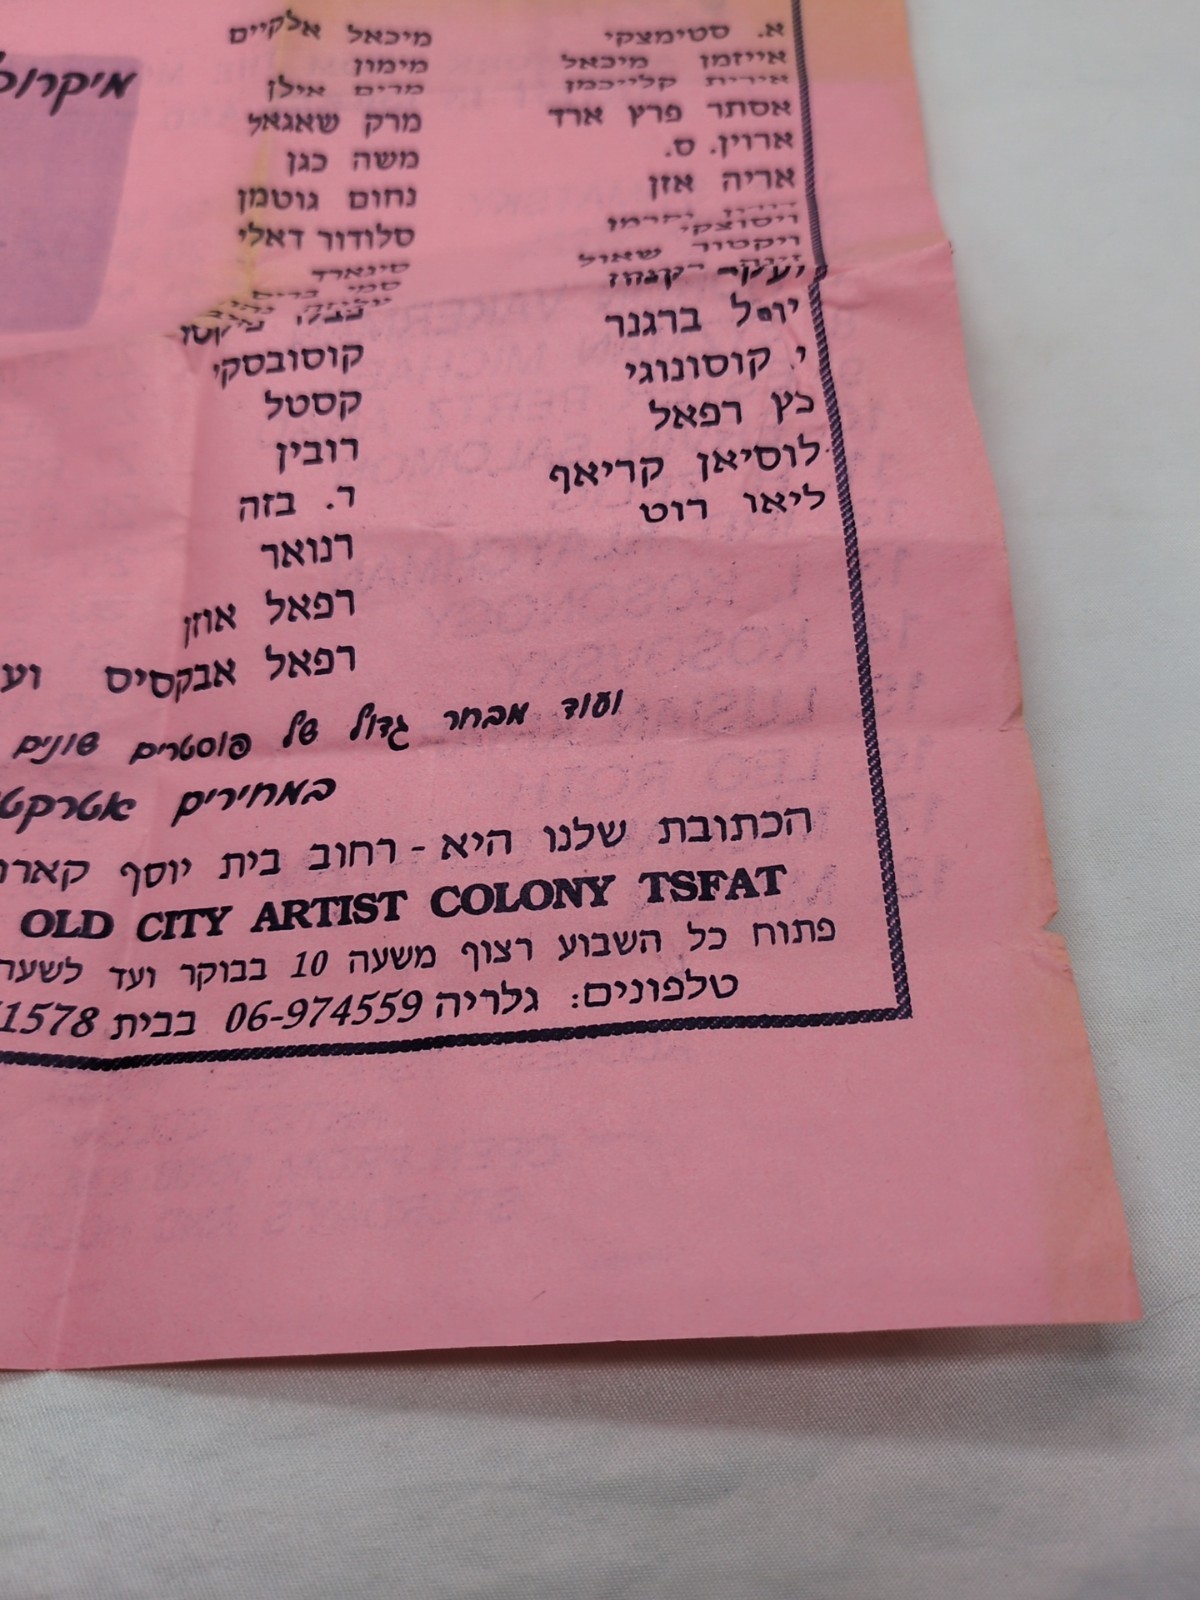 א. סטימצקי
אייזמן מיכאל
אירית קלייכמן
אסתר פרץ ארד
ארוין. ס.
אריה אזן
ויסוצקי
ויקטור שאול
יוסל ברגנר
י. קוסונוגי
כץ רפאל
לוסיאן קריאף
ליאו רוט
מיכאל אלקיים
מימון
מרים אילן
מרק שאגאל
משה כגן
נחום גוטמן
סלודור דאלי
סינארד
קוסובסקי
קסטל
רובין
ר. בזה
רנואר
רפאל אוזן
רפאל אבקסיס
ועוד מבחר גדול של פוסטרים שונים
במחירים
הכתובת שלנו היא - רחוב בית יוסף
OLD CITY ARTIST COLONY TSFAT
פתוח כל השבוע רצוף משעה 10 בבוקר ועד
טלפונים: גלריה 06-974559 בבית 1578